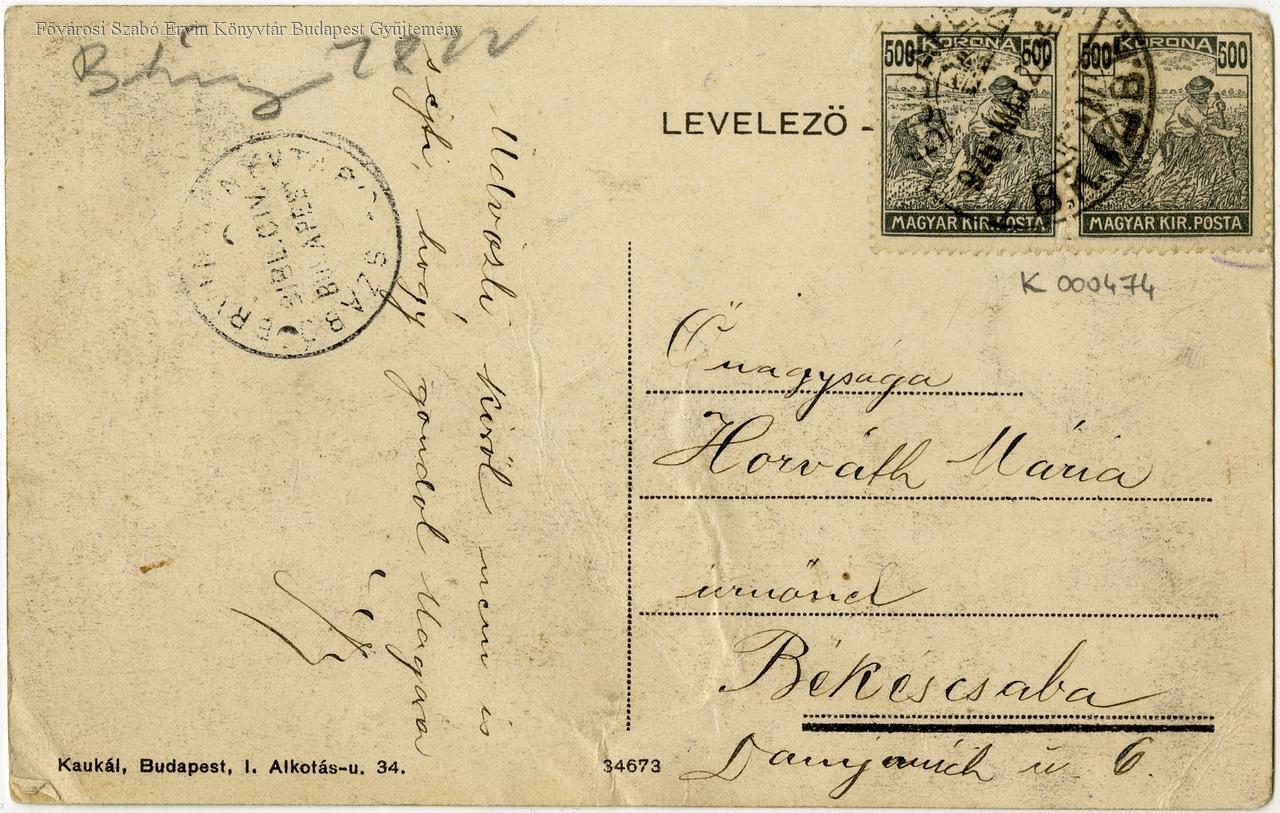 Fővárosi Szabó Ervin Könyvtár Budapest Gyűjtemény
LEVELEZŐ -
500 KORONA 500
MAGYAR KIR. POSTA
500 KORONA 500
MAGYAR KIR. POSTA
K 000474
BUDAPEST
Üdvözli, kiről nem is
sejti, hogy gondol Magára
Őnagysága
Horváth Mária
úrnőnek
Békéscsaba
Damjanich u 6.
Kaukál, Budapest, I. Alkotás-u. 34.
34673